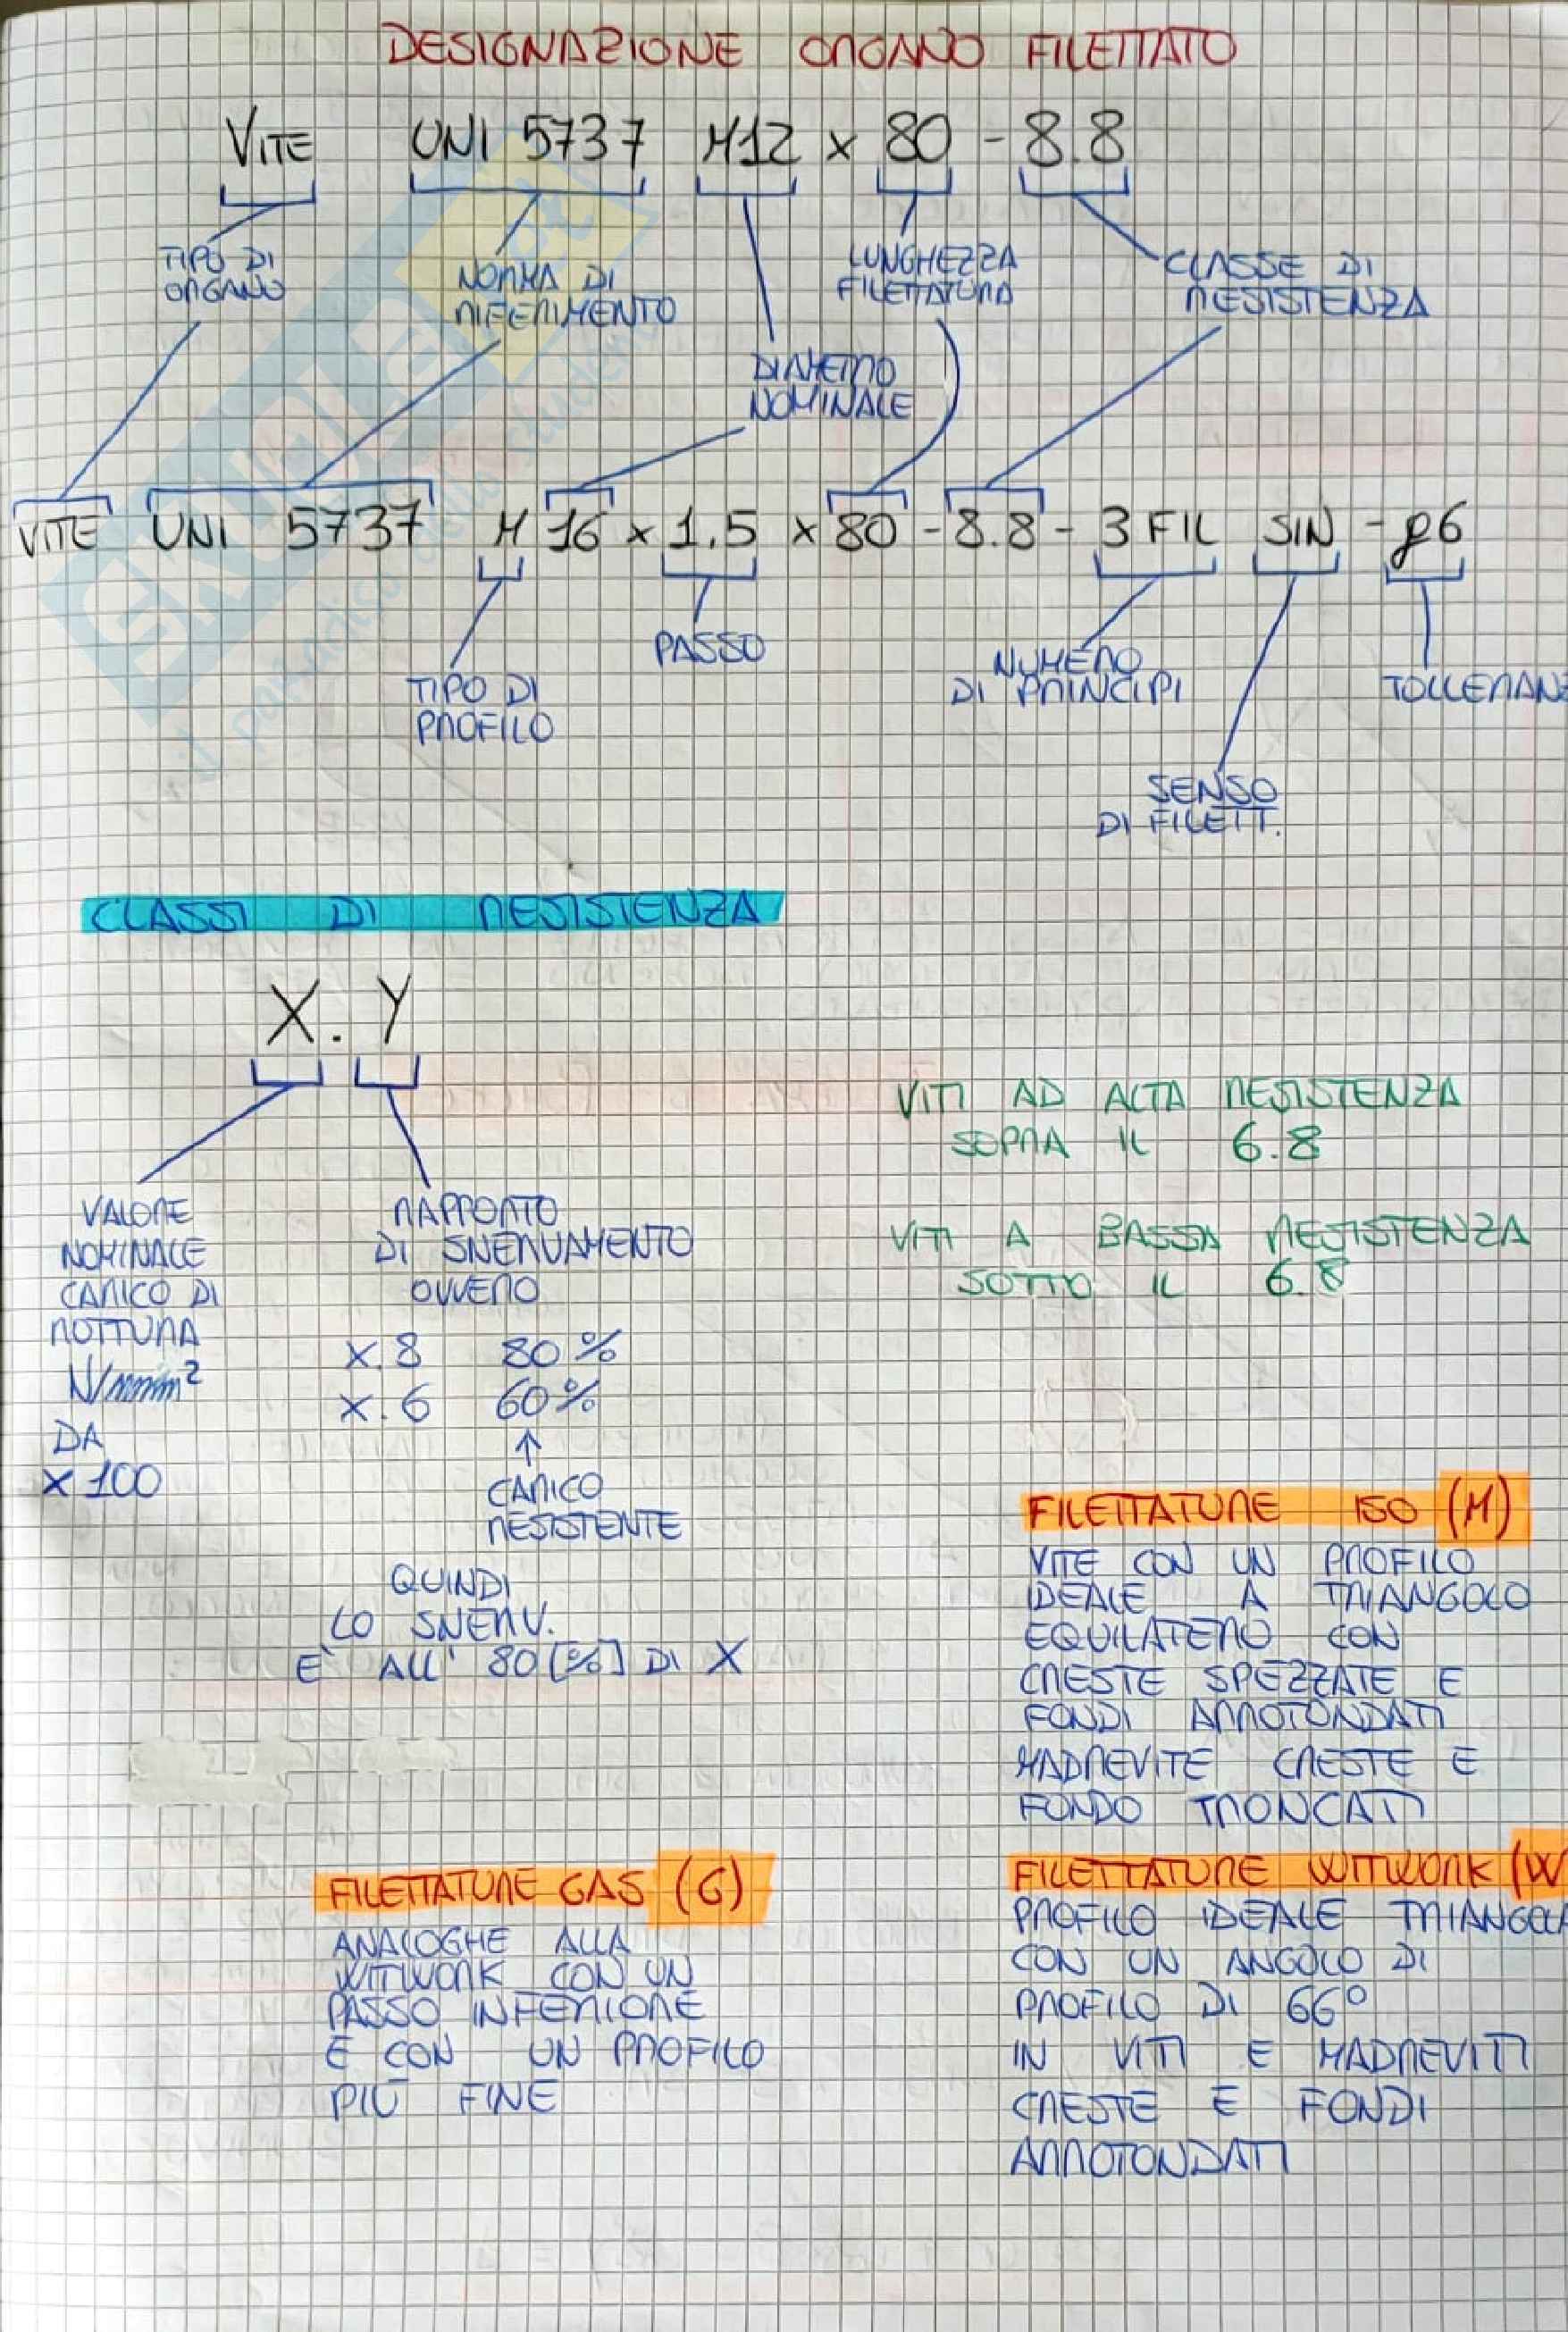 DESIGNAZIONE ORGANO FILETTATO
VITE UNI 5737 M12 x 80 - 8.8
TIPO DI
ORGANO
NORMA DI
RIFERIMENTO
LUNGHEZZA
FILETTATURA
CLASSE DI
RESISTENZA
DIAMETRO
NOMINALE
VITE UNI 5737 M 16 x 1.5 x 80 - 8.8 - 3 FIL SIN - g6
TIPO DI
PROFILO
PASSO
NUMERO
DI PRINCIPI
SENSO
DI FILETT.
TOLLERANZ
CLASSI DI RESISTENZA
X. Y
VALORE
NOMINALE
CARICO DI
ROTTURA
N/mm²
DA
X 100
RAPPORTO
DI SNERVAMENTO
OVVERO
X.8 80%
X.6 60%
↑
CARICO
RESISTENTE
QUINDI
LO SNERV.
E' ALL' 80 [%] DI X
VITI AD ALTA RESISTENZA
SOPRA IL 6.8
VITI A BASSA RESISTENZA
SOTTO IL 6.8
FILETTATURE ISO (M)
VITE CON UN PROFILO
IDEALE A TRIANGOLO
EQUILATERO CON
CRESTE SPEZZATE E
FONDI ARROTONDATI
MADREVITE CRESTE E
FONDO TRONCATI
FILETTATURE GAS (G)
ANALOGHE ALLA
WITWORK CON UN
PASSO INFERIORE
E CON UN PROFILO
PIÙ FINE
FILETTATURE WITWORK (W
PROFILO IDEALE TRIANGOLA
CON UN ANGOLO DI
PROFILO DI 66°
IN VITI E MADREVITI
CRESTE E FONDI
ARROTONDATI
SKUOLA.net
il paradiso dello studente